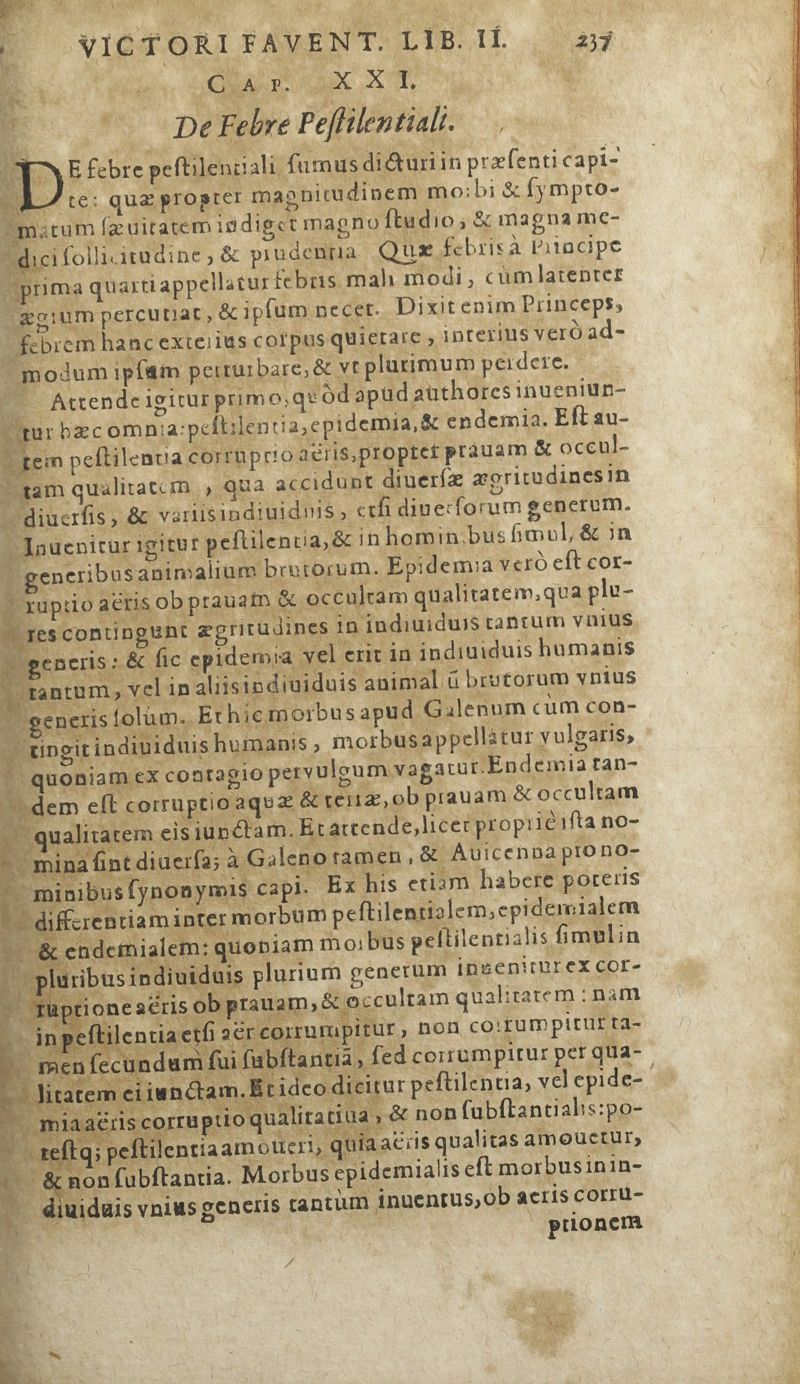 VICTORI FAVENT. LIB. II. 237
CAP. XXI.
De Febre Peſtilentiali.
DE febre peſtilentiali ſumus dicturi in præſenti capi-
te: quæ propter magnitudinem morbi & ſympto-
matum ſæuitatem indiget magno ſtudio, & magna me-
dici ſollicitudine, & prudentia Quæ febris à Principe
prima quarti appellatur febris mali modi, cum latenter
ægrum percutiat, & ipſum necet. Dixit enim Princeps,
febrem hanc exterius corpus quietare, interius verò ad-
modum ipſum perturbare, & vt plurimum perdere.
Attende igitur primo, quòd apud authores inueniun-
tur hæc omnia: peſtilentia, epidemia, & endemia. Eſt au-
tem peſtilentia corruptio aëris, propter prauam & occul-
tam qualitatem, qua accidunt diuerſæ ægritudines in
diuerſis, & variis indiuiduis, etſi diuerſorum generum.
Inuenitur igitur peſtilentia, & in hominibus ſimul, & in
generibus animalium brutorum. Epidemia verò eſt cor-
ruptio aëris ob prauam & occultam qualitatem, qua plu-
res contingunt ægritudines in indiuiduis tantum vnius
generis: & ſic epidemia vel erit in indiuiduis humanis
tantum, vel in aliis indiuiduis animaliū brutorum vnius
generis ſolùm. Et hic morbus apud Galenum cùm con-
tingit indiuiduis humanis, morbus appellatur vulgaris,
quoniam ex contagio per vulgum vagatur. Endemia tan-
dem eſt corruptio aquæ & terræ, ob prauam & occultam
qualitatem eis iunctam. Et attende, licet propriè iſta no-
mina ſint diuerſa; à Galeno tamen, & Auicenna pro no-
minibus ſynonymis capi. Ex his etiam habere poteris
differentiam inter morbum peſtilentialem, epidemialem
& endemialem: quoniam morbus peſtilentialis ſimul in
pluribus indiuiduis plurium generum inuenitur ex cor-
ruptione aëris ob prauam, & occultam qualitatem: nam
in peſtilentia etſi aër corrumpitur, non corrumpitur ta-
men ſecundum ſui ſubſtantiā, ſed corrumpitur per qua-
litatem ei iunctam. Et ideo dicitur peſtilentia, vel epide-
mia aëris corruptio qualitatiua, & non ſubſtantialis: po-
teſtq; peſtilentia amoueri, quia aëris qualitas amouetur,
& non ſubſtantia. Morbus epidemialis eſt morbus in in-
diuiduis vnius generis tantùm inuentus, ob aeris corru-
ptionem